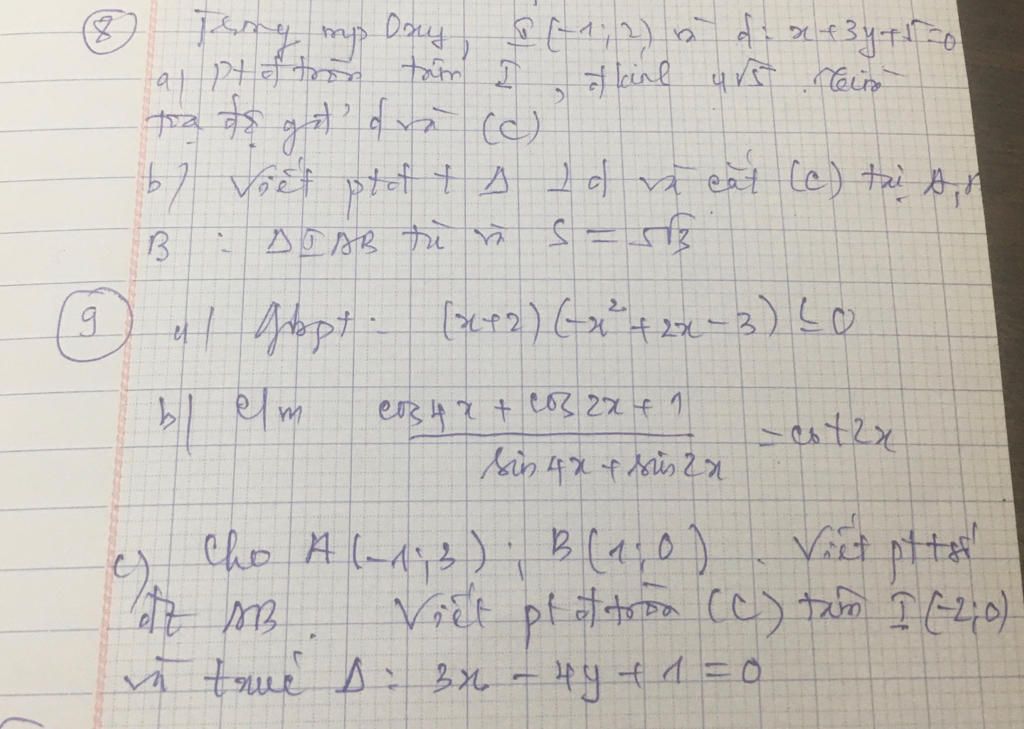 8 Trong mp Oxy, I(-1;2) và d: x+3y+5=0
a) Pt đ tròn tâm I, đkính 4√5. Tìm
tọa độ gđ' d và (C)
b) Viết ptđt Δ ⊥ d và cắt (C) tại A,
B : ΔIAB tù và S = 5√3
9 a) Gbpt: (x+2)(-x²+2x-3) ≤ 0
b) C/m (cos4x + cos2x + 1)/(sin4x + sin2x) = cot2x
c) Cho A(-1;3); B(1;0). Viết pt tsố
đz AB. Viết pt đ tròn (C) tâm I(-2;0)
và txuc Δ: 3x - 4y + 1 = 0